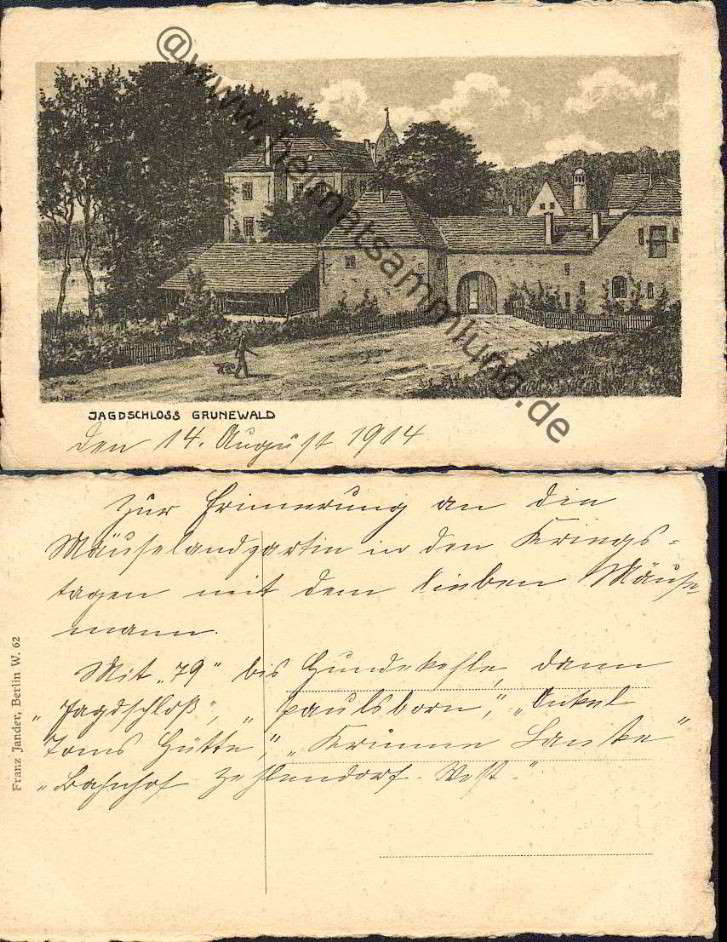 @www.heimatsammlung.de
JAGDSCHLOSS GRUNEWALD
den 14. August 1914
Zur Erinnerung an die
Mäuselandpartie in den Kriegs-
tagen mit dem lieben Mäuse
mann.
Mit „79" bis Hundekehle, dann
„Jagdschloß", „Paulsborn", „Onkel
Toms Hütte", „Krumme Lanke"
„Bahnhof Zehlendorf-West."
Franz Jander, Berlin W. 62